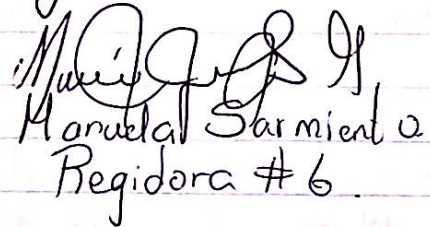 Manuela Sarmiento
Regidora # 6.